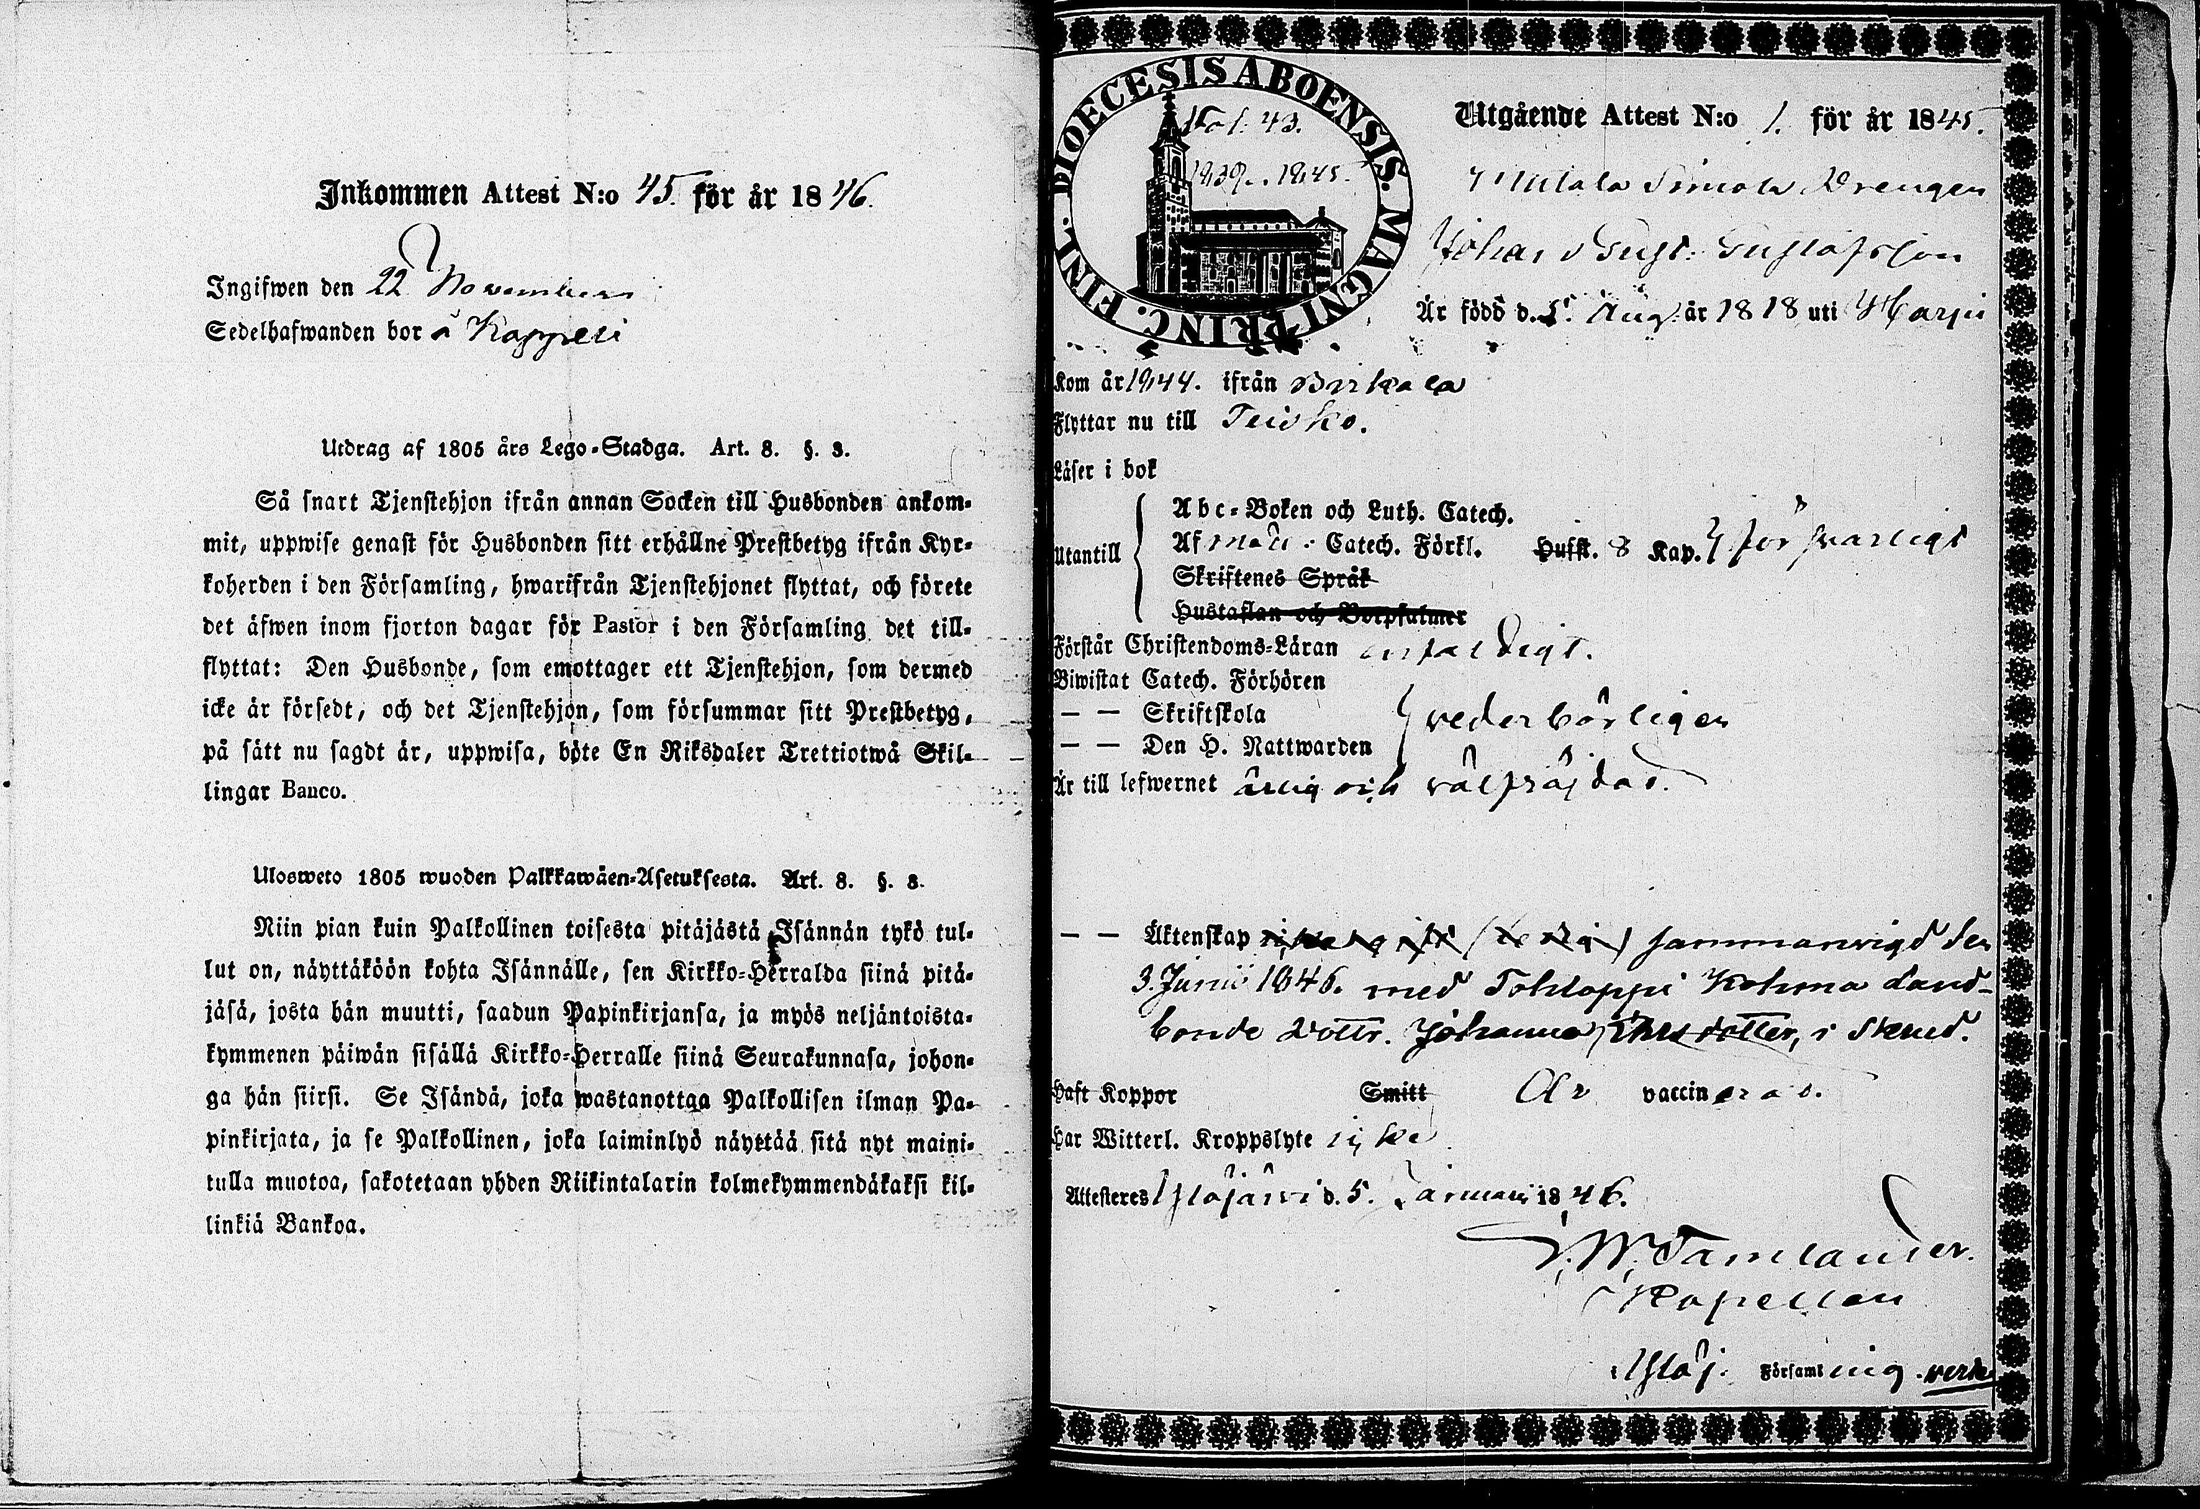 Inkommen Attest N:o 45. för år 1846.
Ingifwen den 22 November
Sedelhafwanden bor å Kappeli
Utdrag af 1805 års Lego-Stadga. Art. 8. §. 3.
Så snart Tjenstehjon ifrån annan Socken till Husbonden ankom-
mit, uppwise genast för Husbonden sitt erhållne Prestbetyg ifrån Kyr-
koherden i den Församling, hwarifrån Tjenstehjonet flyttat, och förete
det äfwen inom fjorton dagar för Pastor i den Församling det till-
flyttat: Den Husbonde, som emottager ett Tjenstehjon, som dermed
icke är försedt, och det Tjenstehjon, som försummar sitt Prestbetyg,
på sätt nu sagdt är, uppwisa, böte En Riksdaler Trettiotwå Skil-
lingar Banco.
Ulosweto 1805 wuoden Palkkawäen-Asetuksesta. Art. 8. §. 3.
Niin pian kuin Palkollinen toisesta pitäjästä Isännän tykö tul-
lut on, näyttäköön kohta Isännälle, sen Kirkko-Herralda siinä pitä-
jäsä, josta hän muutti, saadun Papinkirjansa, ja myös neljäntoista-
kymmenen päiwän sisällä Kirkko-Herralle siinä Seurakunnasa, johon-
ga hän siirsi. Se Isändä, joka wastanottaa Palkollisen ilman Pa-
pinkirjata, ja se Palkollinen, joka laiminlyö näyttää sitä nyt maini-
tulla muotoa, sakotetaan yhden Riikintalarin kolmekymmendäkaksi kil-
linkiä Bankoa.
DIOECESIS ABOENSIS. MAGNI PRINC. FINL.
Fol. 43.
1839–1845.
Utgående Attest N:o 1. för år 1845.
Simola Drengen
Johan Gust: Gustafsson
Är född d. 5. Aug. år 1818 uti Harju
Kom år 1844. ifrån Birkala
Flyttar nu till Teisko.
Läser i bok
Utantill
Abc-Boken och Luth. Catech.
Af Catech. Förkl. Hufst. 8 Kap. försvarligt
Skriftenes Språk
Hustaflan och Botpsalmer
Förstår Christendoms-Läran enfaldigt.
Biwistat Catech. Förhören
— — Skriftskola
— — Den H. Nattwarden
vederbörligen
Är till lefwernet ärlig och välfräjdad.
— — Äktenskap sammanvigd den
3. Junii 1846. med Tohloppi Kohma Land-
bonde Dottr. Johanna dotter, i Sken̄d.
Haft Koppor Smitt Är vaccinerad.
Har Witterl. Kroppslyte icke
Attesteras Ylöjärvi d. 5. Januarii 1846.
Tamlander.
Kapellan
i Ylöj. Församling. verte